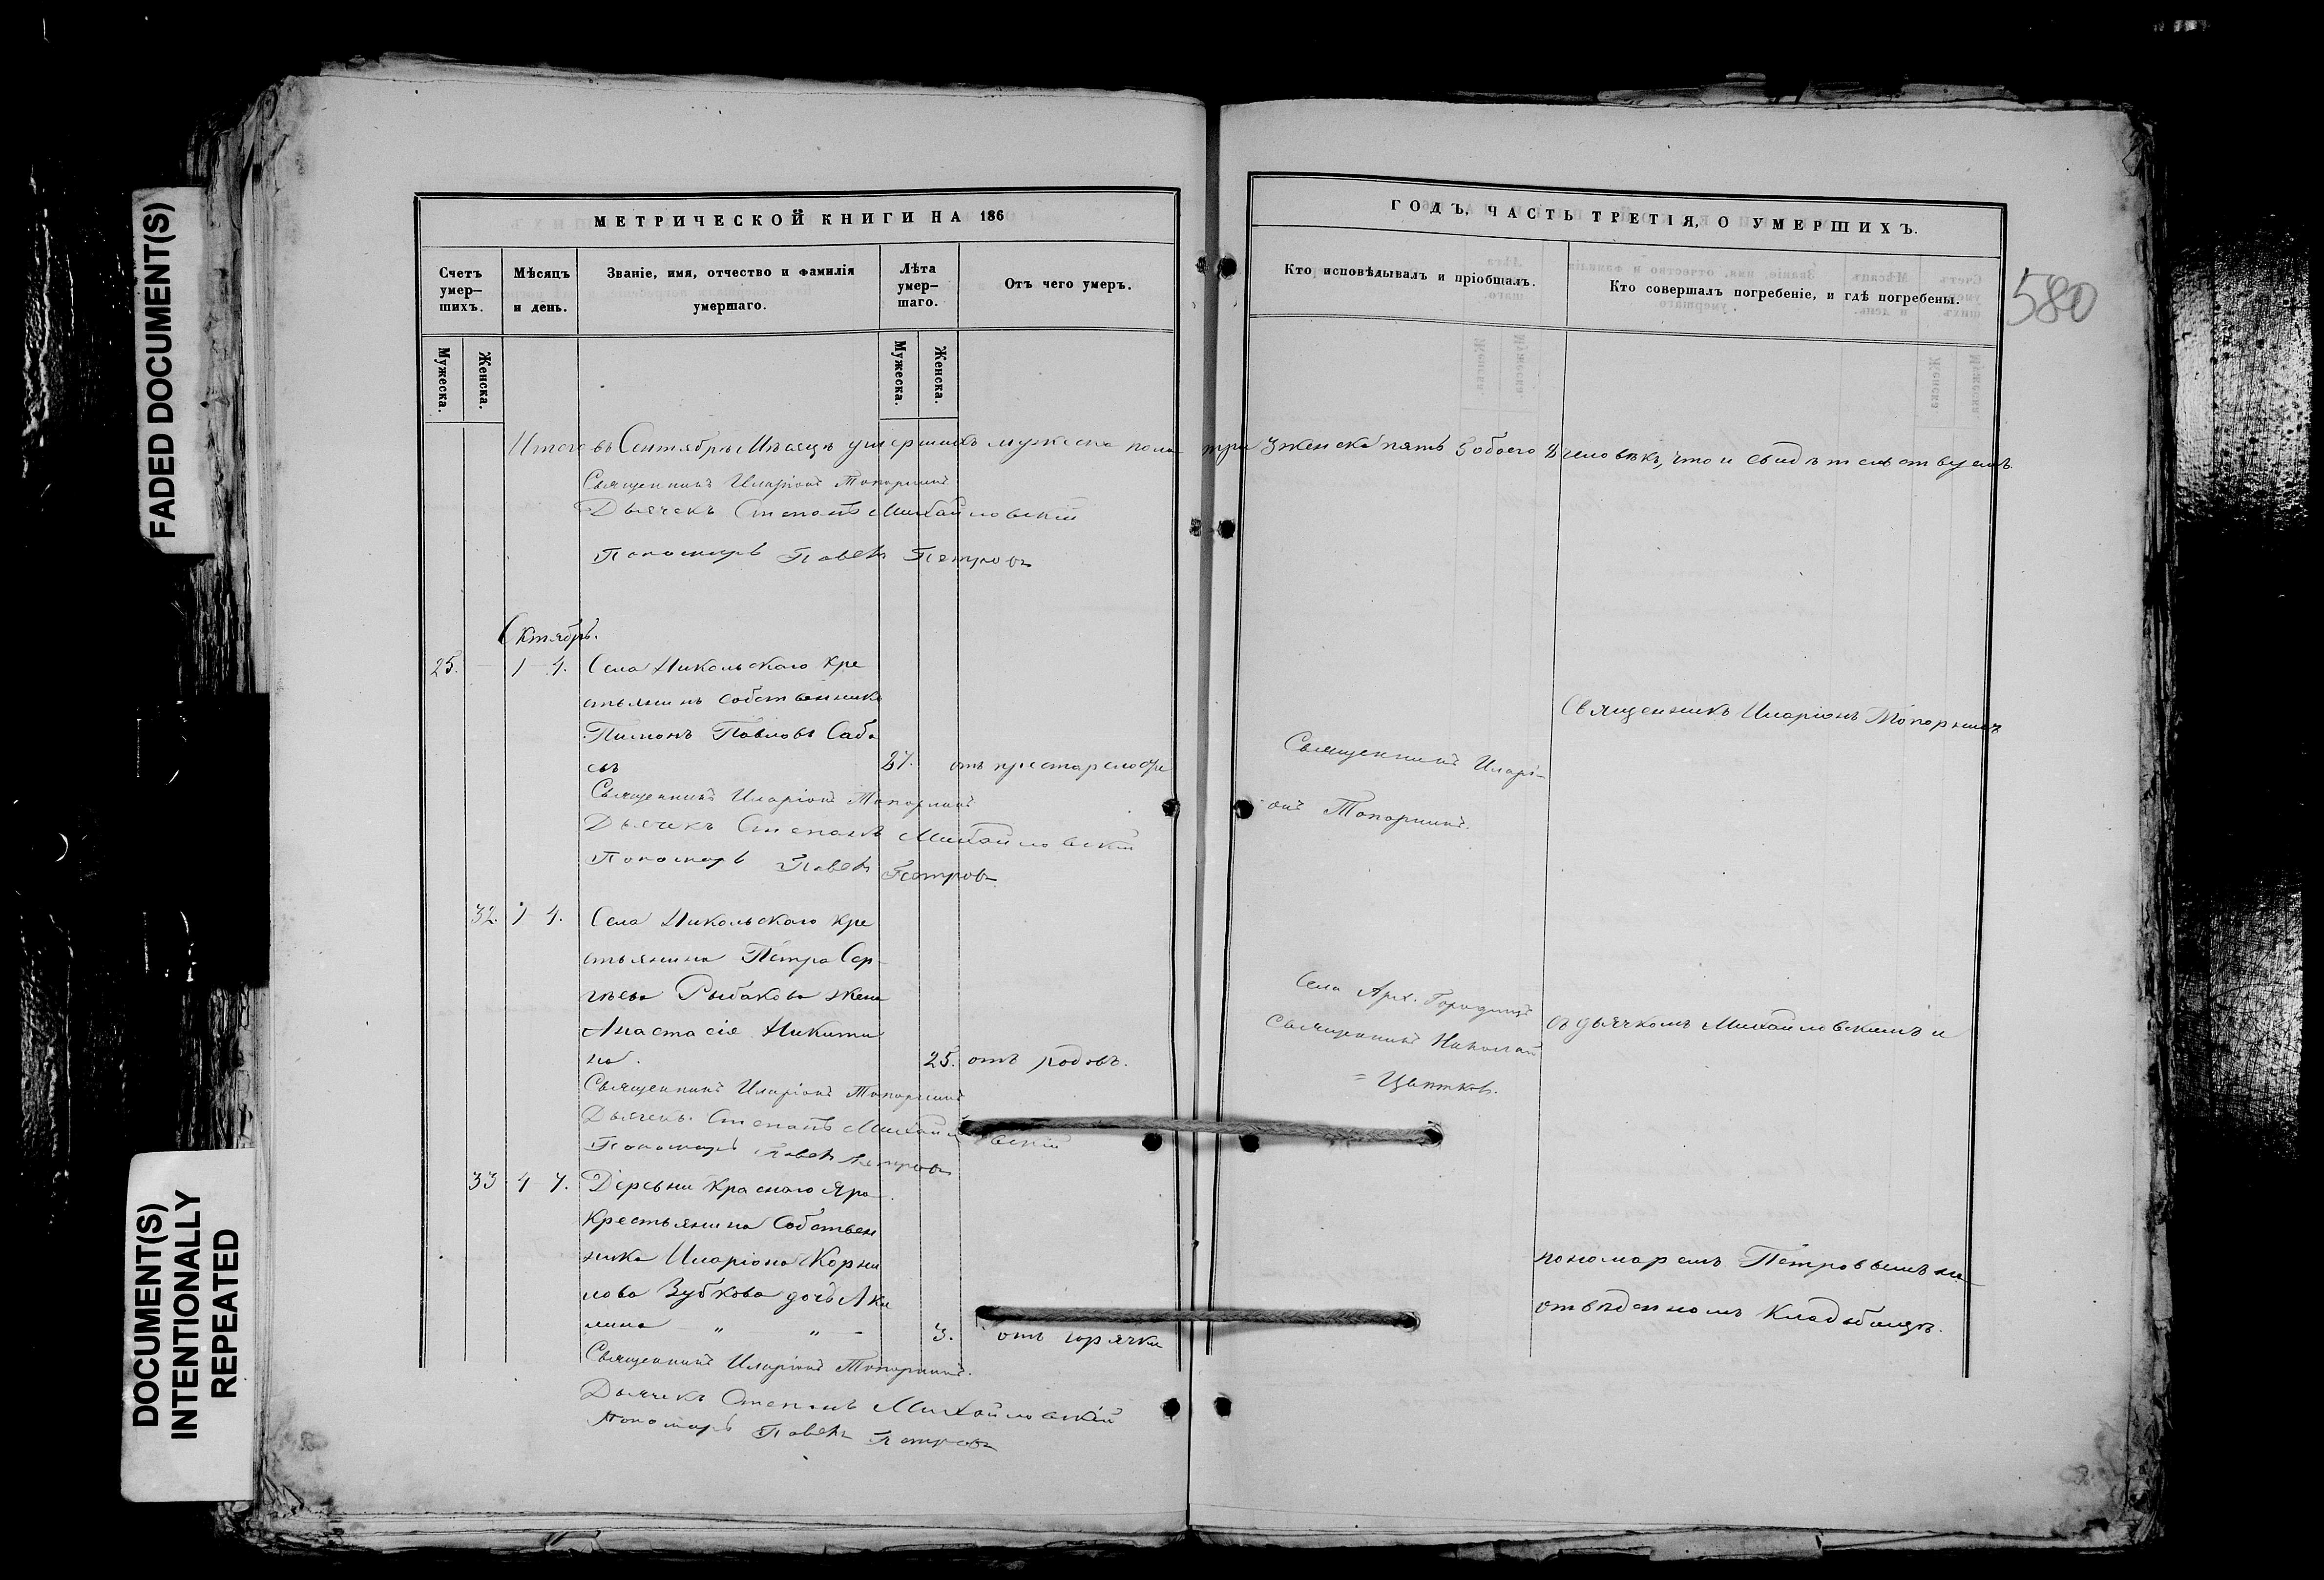 FADED DOCUMENT(S)
DOCUMENT(S)
INTENTIONALLY
REPEATED
МЕТРИЧЕСКОЙ КНИГИ НА 186
Счетъ умер-шихъ.
Мѣсяцъ и день.
Званіе, имя, отчество и фамилія умершаго.
Лѣта умер-шаго.
Отъ чего умеръ.
Мужеска.
Женска.
Мужеска.
Женска.
ГОДЪ, ЧАСТЬ ТРЕТІЯ, О УМЕРШИХЪ.
Кто исповѣдывалъ и пріобщалъ.
Кто совершалъ погребеніе, и гдѣ погребены.
580
Итого въ Сентябрѣ Мѣсяцѣ умершихъ мужеска пола три 3 женска пять 5 обоего 8 человѣкъ, что и свидѣтельствуемъ
Священникъ Иларіонъ Топорнинъ
Дьячекъ Степанъ Михайловскій
Пономарь Павелъ Петровъ
Октябрь.
25. 1 4. Села Никольскаго кре
стьянинъ собственникъ
Пимонъ Павловъ Саба
евъ
отъ престарелости
Священникъ Иларіонъ Топорнинъ
Дьячекъ Степанъ Михайловскій
Пономарь Павелъ Петровъ
Священникъ Иларі-
онъ Топорнинъ.
Священникъ Иларіонъ Топорнинъ
32. 1 4. Села Никольскаго кре
стьянина Петра Сер-
гѣева Рыбакова жена
Анастасія Никити
на. 25. отъ родовъ.
Священникъ Иларіонъ Топорнинъ
Дьячекъ Степанъ Михайловскій
Пономарь Павелъ Петровъ
Села Арх. Городищъ
священникъ Николай
= Цвѣтковъ.
съ дьячкомъ Михайловскимъ и
33 4 7. Деревни Краснаго Яра
Крестьянина Собствен
ника Иларіона Корни
лова Зубкова дочь Аки
лина — " — " — 3. отъ горячки
Священникъ Иларіонъ Топорнинъ.
Дьячекъ Степанъ Михайловскій
Пономарь Павелъ Петровъ
пономаремъ Петровымъ на
отведенномъ Кладбищѣ.